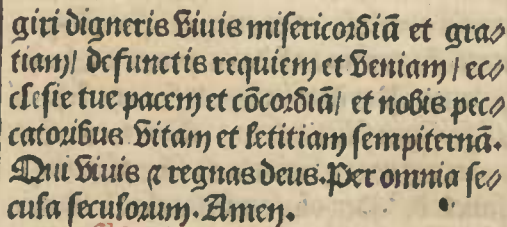 giri digneris viuis misericordiā et gra⸗
tiam/ defunctis requiem et veniam/ ec⸗
clesie tue pacem et cōcordiā/ et nobis pec⸗
catoribus vitam et letitiam sempiternā.
Qui viuis ⁊ regnas deus. Per omnia se⸗
cula seculorum. Amen.